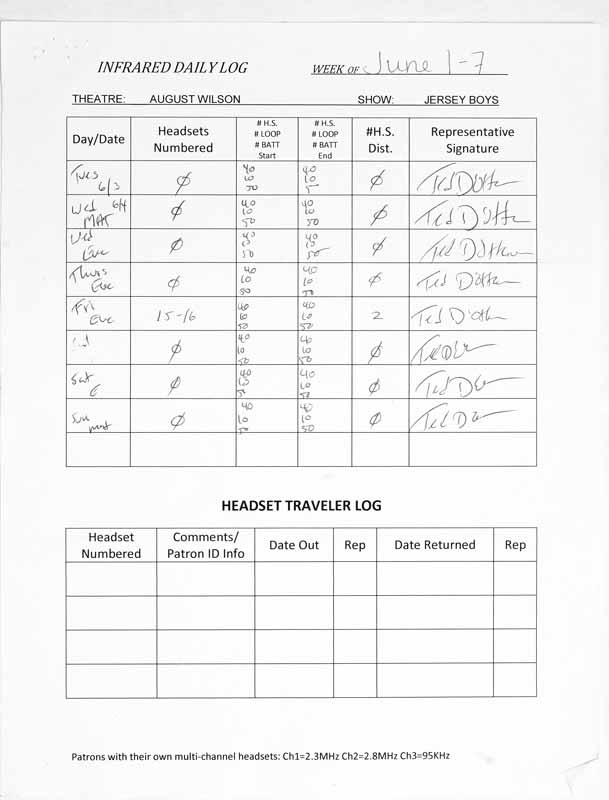 INFRARED DAILY LOG WEEK OF June 1-7
THEATRE: AUGUST WILSON SHOW: JERSEY BOYS
Day/Date Headsets Numbered # H.S. # LOOP # BATT Start # H.S. # LOOP # BATT End #H.S. Dist. Representative Signature
Tues 6/3 Ø 40 10 50 40 10 5 Ø Ted
Wed 6/4 MAT Ø 40 10 50 40 10 50 Ø Ted
Wed Eve Ø 40 10 50 40 10 50 Ø Ted
Thurs Eve Ø 40 10 50 40 10 50 Ø Ted
Fri Eve 15-16 40 10 50 40 10 50 2 Ted
Ø 40 10 50 40 10 50 Ø Ted
Sat E Ø 40 10 5 40 10 50 Ø Ted
Sun mat Ø 40 10 50 40 10 50 Ø Ted
HEADSET TRAVELER LOG
Headset Numbered Comments/ Patron ID Info Date Out Rep Date Returned Rep
Patrons with their own multi-channel headsets: Ch1=2.3MHz Ch2=2.8MHz Ch3=95KHz